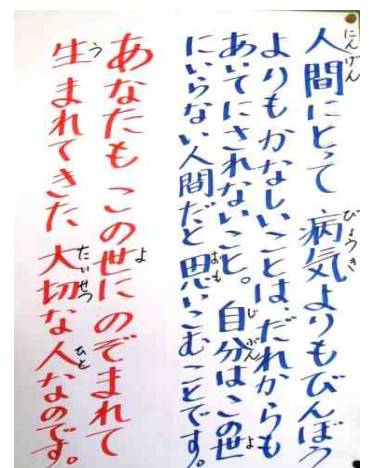 人間にとって 病気よりもびんぼう
よりもかなしいことは、だれからも
あいてにされないこと。自分はこの世
にいらない人間だと思いこむことです。
あなたも この世に のぞまれて
生まれてきた 大切な人なのです。